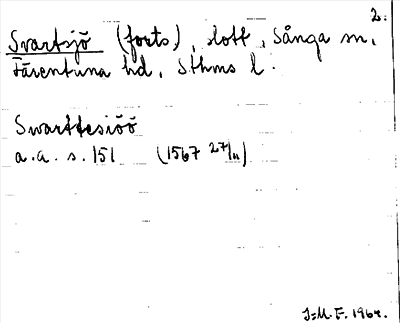 2.
Svartsjö (forts), slott, Sånga sn,
Färentuna hd, Sthms l.
Swarttesiöö
a.a. s. 151 (1567 27/11)
J-M.F. 1964.